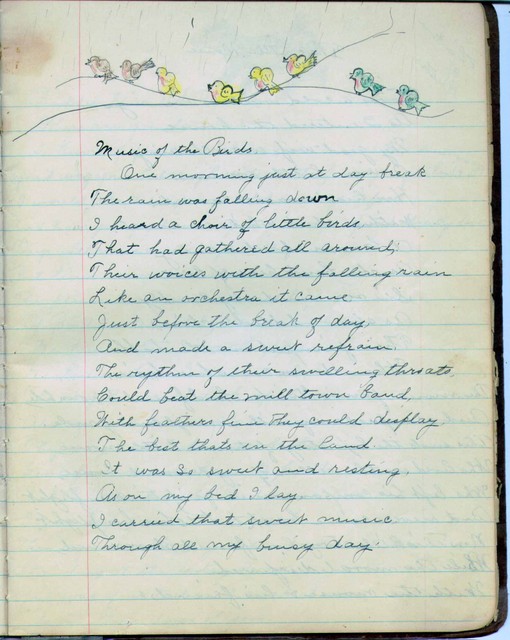 Music of the Birds
One morning just at day break
The rain was falling down
I heard a choir of little birds
That had gathered all around;
Their voices with the falling rain
Like an orchestra it came
Just before the break of day,
And made a sweet refrain.
The rythm of their swelling throats,
Could beat the mill town band,
With feathers fine they could display
The best thats in the land.
It was so sweet and resting,
As on my bed I lay,
I carried that sweet music
Through all my busy day.